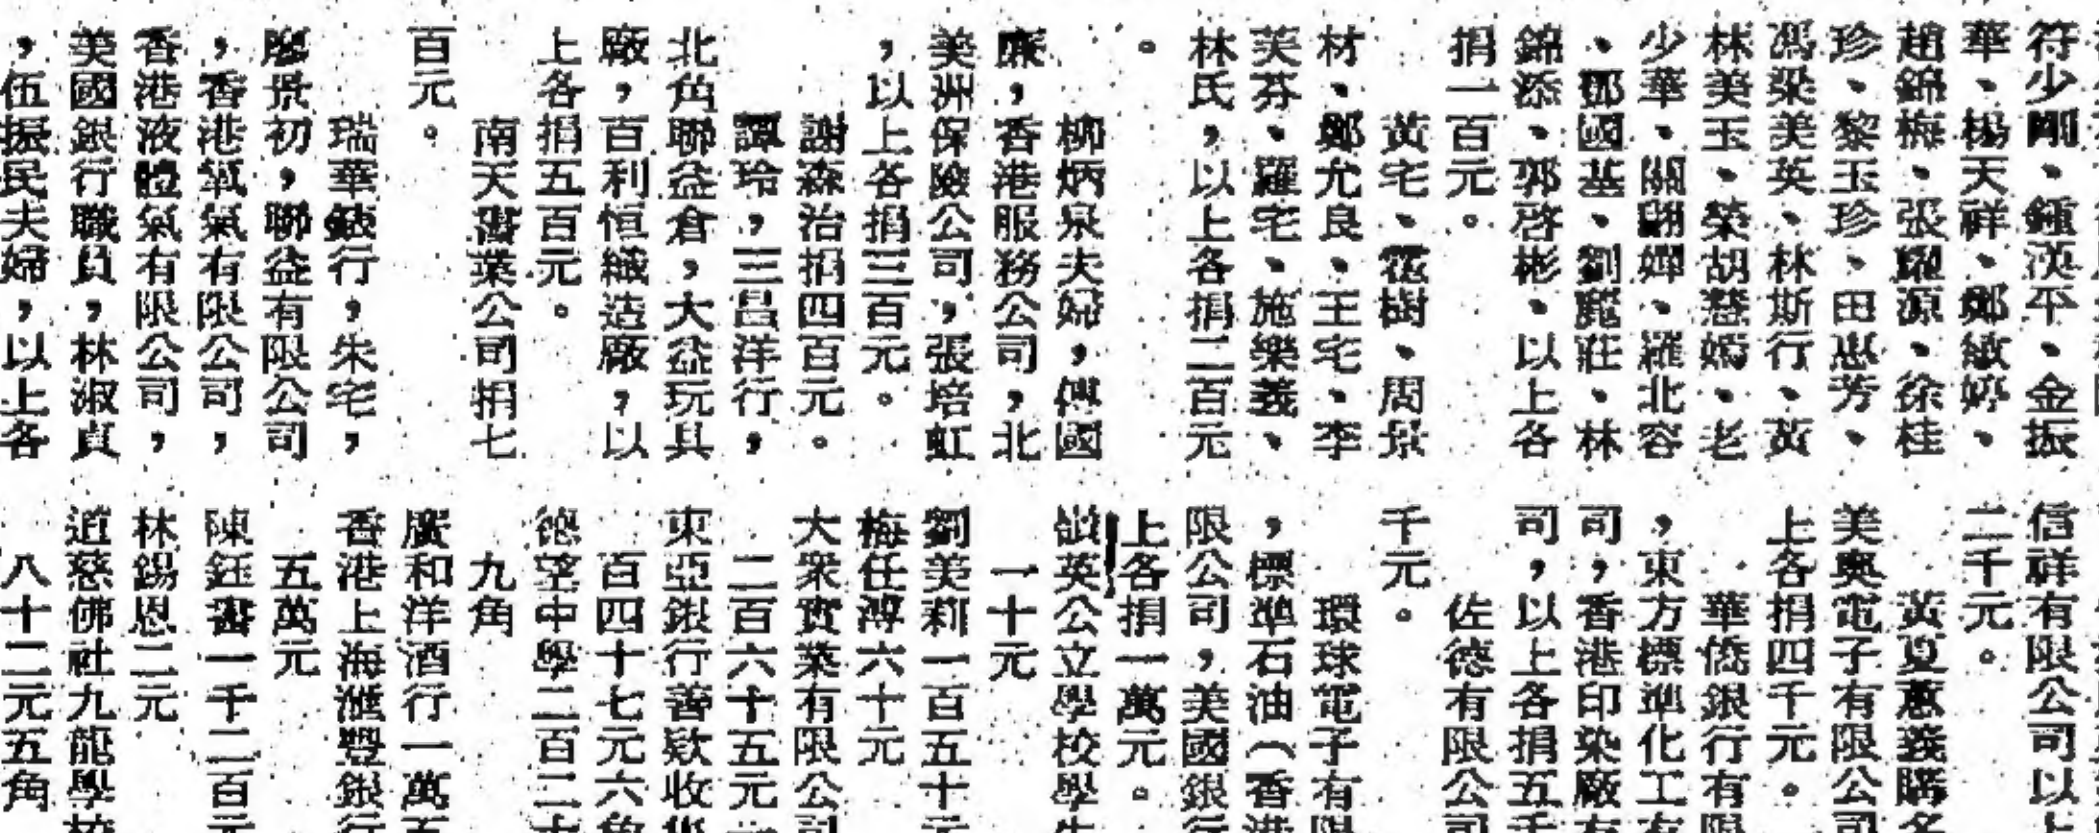 符少剛、鍾漢平、金振
華、楊天祥、鄭敏婷、
趙錦梅、張耀源、徐桂
珍、黎玉珍、田惠芳、
馮梁美英、林斯行、黃
林美玉、榮胡慧嫣、老
少華、關翩嬋、羅北容
、鄧國基、劉麗莊、林
錦添、郭啓彬、以上各
捐一百元。
黃宅、霍樹、周景
材、鄭允良、王宅、李
芙芬、羅宅、施樂義、
林氏，以上各捐二百元
。
柳炳泉夫婦，傅國
廉，香港服務公司，北
美洲保險公司，張培虹
，以上各捐三百元。
謝森治捐四百元。
譚玲，三昌洋行，
北角聯益倉，大益玩具
廠，百利恒織造廠，以
上各捐五百元。
南天書業公司捐七
百元。
瑞華銀行，朱宅，
廖景初，聯益有限公司
，香港氧氣有限公司，
香港液體氣有限公司，
美國銀行職員，林淑貞
，伍振民夫婦，以上各
信祥有限公司以上
二千元。
黃夏蕙義購名
美奧電子有限公司
上各捐四千元。
華僑銀行有限
，東方標準化工有
司，香港印染廠有
司，以上各捐五千
佐德有限公司
千元。
環球電子有限
，標準石油（香港
限公司，美國銀行
上各捐一萬元。
嶺英公立學校學生
一十元
劉美莉一百五十元
梅任溥六十元
大衆實業有限公司
二百六十五元
東亞銀行善欵收集
百四十七元六角
德望中學二百二十
九角
廣和洋酒行一萬五
香港上海滙豐銀行
五萬元
陳鈺書一千二百元
林錫恩二元
道慈佛社九龍學校
八十二元五角